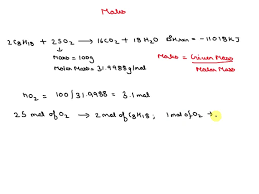 Moles
2C8H18 + 25O2 → 16CO2 + 18H2O ΔHrxn = -11018kJ
Mass = 100g
Molar Mass = 31.9988g/mol
Moles = Given Mass / Molar Mass
nO2 = 100/31.9988 = 3.1mol
25 mol of O2 → 2 mol of C8H18 ; 1 mol of O2 →